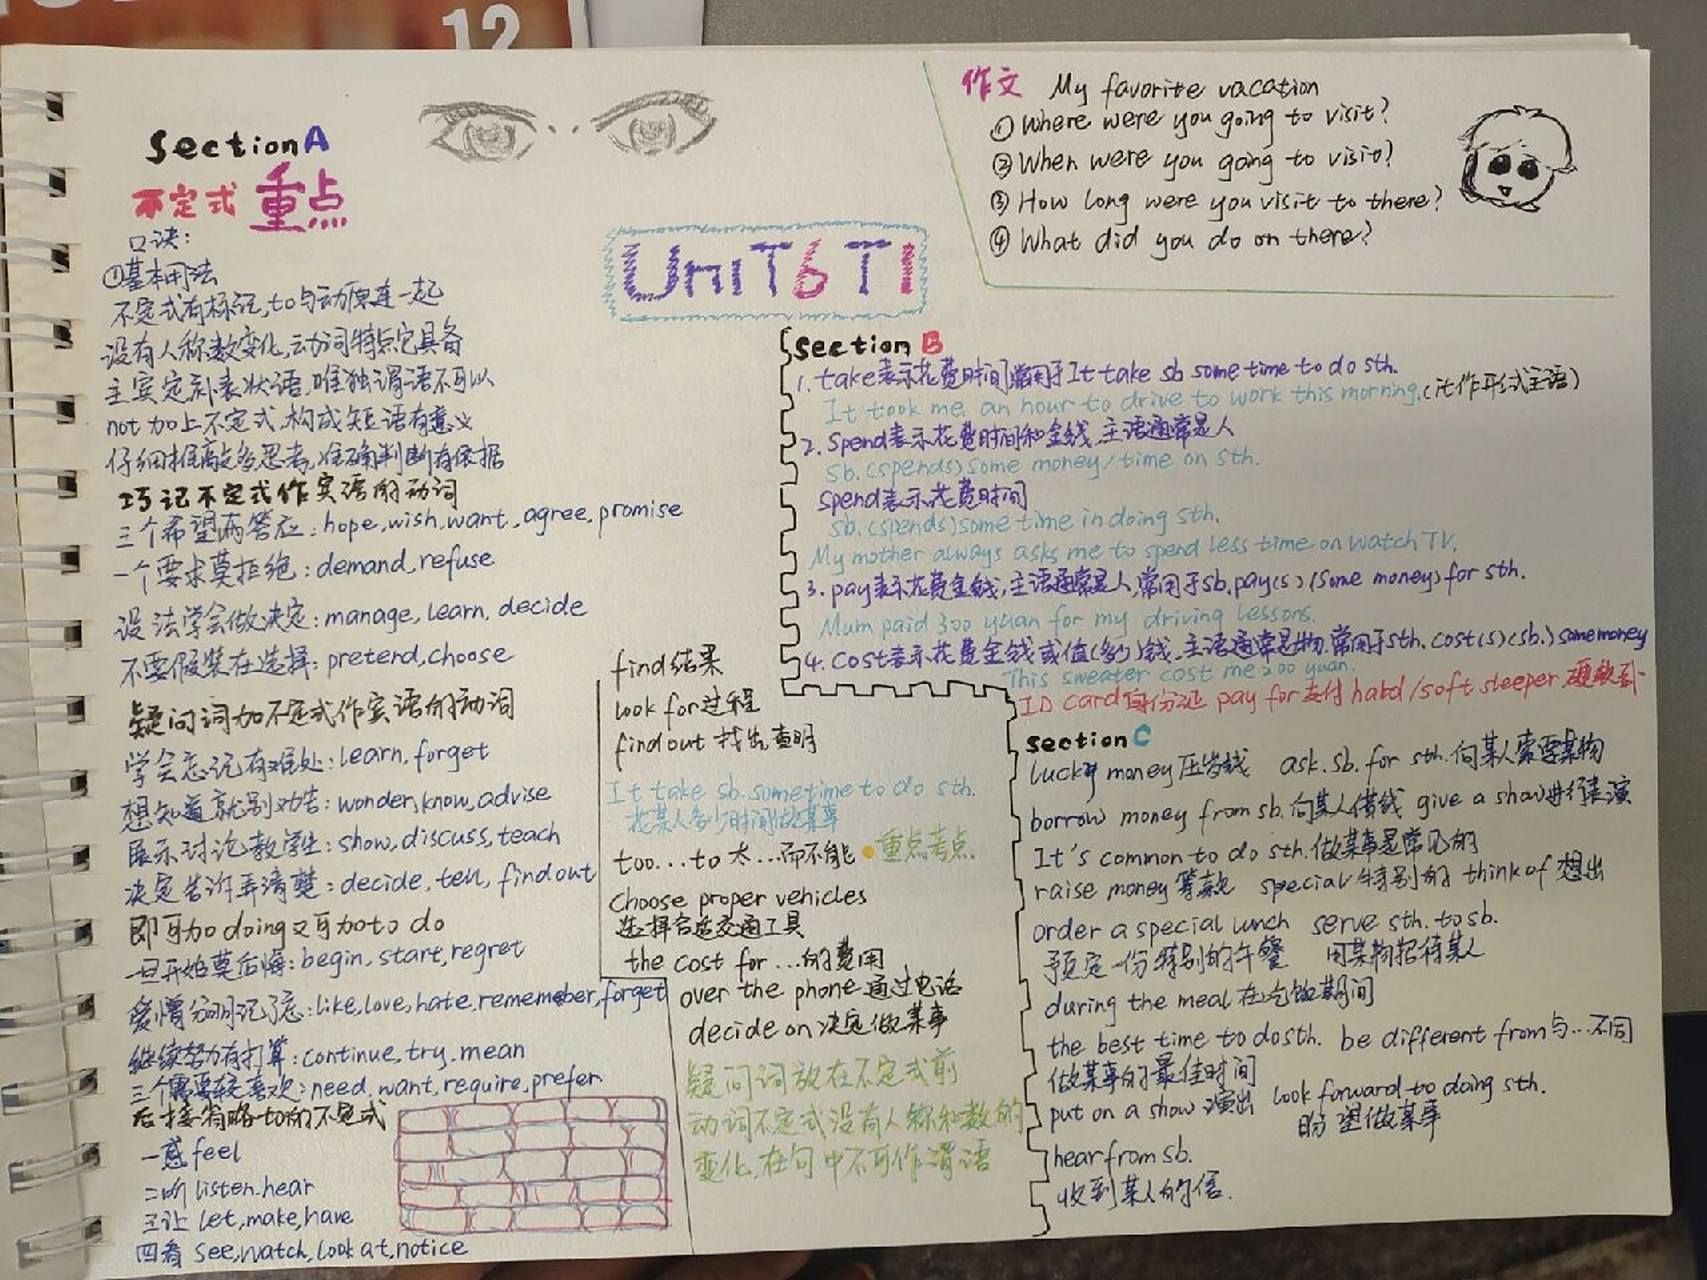 12
Section A
不定式 重点
口诀:
①基本用法
不定式有标记,to与动原连一起
没有人称数变化,动词特点它具备
主宾定补表状语,唯独谓语不可以
not加上不定式,构成短语有意义
仔细推敲多思考,准确判断有依据
巧记不定式作宾语的动词
三个希望两答应:hope,wish,want,agree,promise
一个要求莫拒绝:demand,refuse
设法学会做决定:manage,learn,decide
不要假装在选择:pretend,choose
疑问词加不定式作宾语的动词
学会忘记有难处:learn,forget
想知道就别劝告:wonder,know,advise
展示讨论教学生:show,discuss,teach
决定告诉弄清楚:decide,tell,find out
即可加doing又可加to do
一旦开始莫后悔:begin,start,regret
爱憎分明记了忘:like,love,hate,remember,forget
继续努力有打算:continue,try,mean
三个需要较喜欢:need,want,require,prefer
后接省略to的不定式
一感feel
二听listen,hear
三让let,make,have
四看see,watch,look at,notice
UniT6 T1
find结果
look for过程
find out找出,查明
It take sb.sometime to do sth.
花某人多少时间做某事
too...to太...而不能 重点考点
Choose proper vehicles
选择合适交通工具
the cost for ...的费用
over the phone通过电话
decide on决定做某事
疑问词放在不定式前
动词不定式没有人称和数的
变化,在句中不可作谓语
作文 My favorite vacation
①Where were you going to visit?
②When were you going to visit?
③How long were you visit to there?
④What did you do on there?
Section B
1.take表示花费时间,常用于It take sb some time to do sth.
It took me an hour to drive to work this morning.(it作形式主语)
2.Spend表示花费时间和金钱,主语通常是人
Sb.(spends)some money/time on sth.
spend表示花费时间
sb.(spends)some time in doing sth.
My mother always asks me to spend less time on watch TV.
3.pay表示花费金钱,主语通常是人,常用于sb.pay(s)(some money)for sth.
Mum paid 300 yuan for my driving lessons.
4.Cost表示花费金钱或值(多少)钱,主语通常是物,常用于sth.cost(s)(sb.)some money
This sweater cost me 200 yuan.
ID card身份证 pay for支付 hard/soft sleeper 硬软卧
Section C
lucky money压岁钱 ask.sb.for sth.向某人索要某物
borrow money from sb.向某人借钱 give a show进行表演
It's common to do sth.做某事是常见的
raise money筹款 special特别的 think of想出
order a special lunch serve sth.to sb.
预定一份特别的午餐 用某物招待某人
during the meal在吃饭期间
the best time to do sth. be different from与...不同
做某事的最佳时间
put on a show演出 look forward to doing sth.
盼望做某事
hear from sb.
收到某人的信.